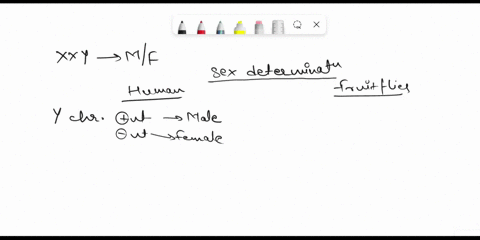 XXY → M/F
sex determinatn
Human
fruitflies
Y chr. ⊕nt → Male
⊖nt → female